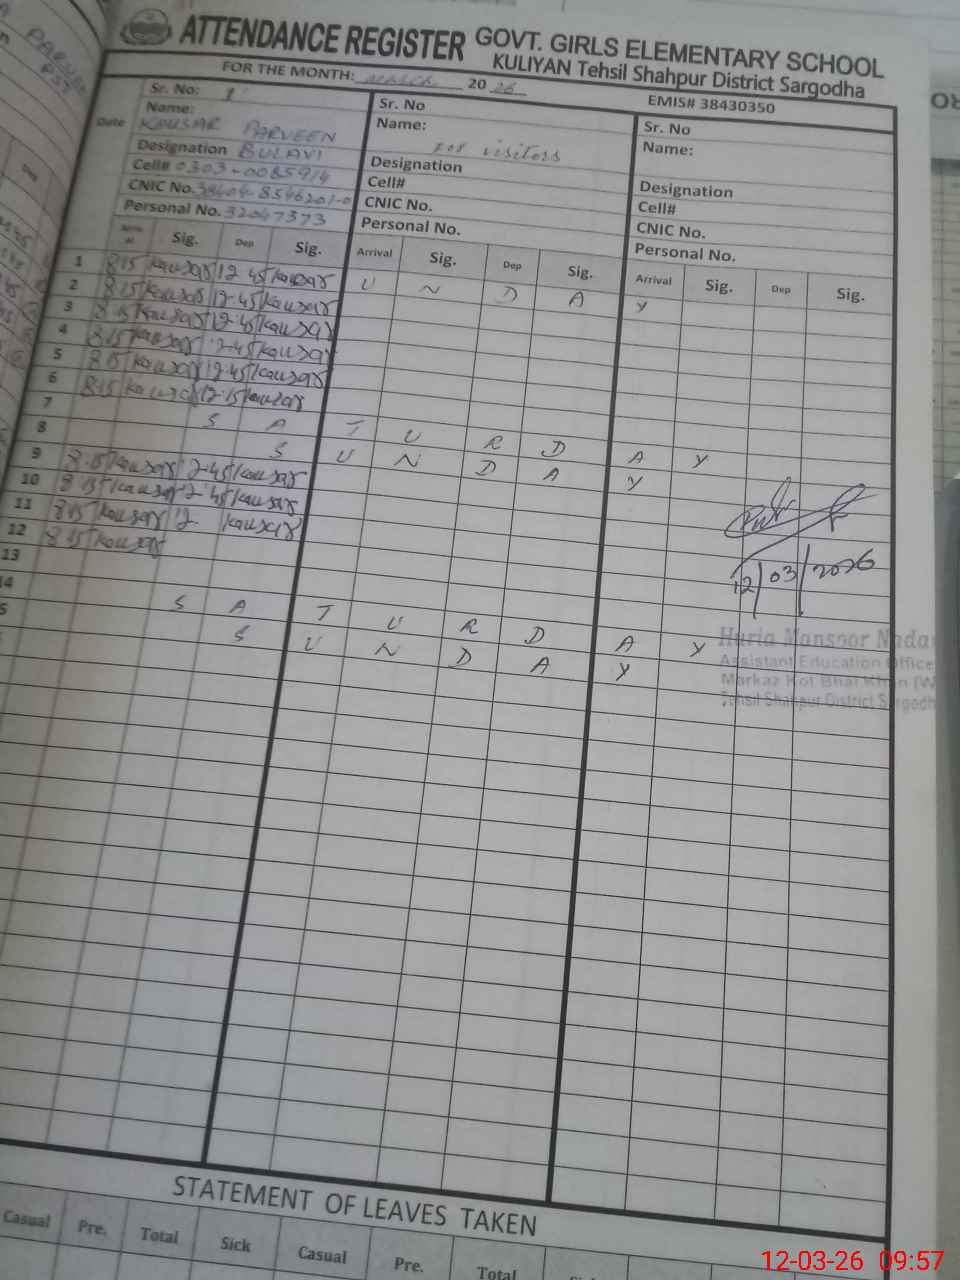 ATTENDANCE REGISTER GOVT. GIRLS ELEMENTARY SCHOOL
KULIYAN Tehsil Shahpur District Sargodha
FOR THE MONTH: MARCH 20 26
EMIS# 38430350
Date
Sr. No: 1
Name:
KAUSAR PARVEEN
Designation BULAVI
Cell# 0303-0085914
CNIC No. 38404-8546201-0
Personal No. 32047373
Sr. No
Name:
for visitors
Designation
Cell#
CNIC No.
Personal No.
Sr. No
Name:
Designation
Cell#
CNIC No.
Personal No.
Sig. Dep Sig. Arrival Sig. Dep Sig. Arrival Sig. Dep Sig.
1 8:15 Kausar 12-45 Kausar U N D A Y
2 8:15 Kausar 12-45 Kausar
3 8:15 Kausar 12-45 Kausar
4 8:15 Kausar 2-45 Kausar
5 8:15 Kausar 12-45 Kausar
6 8:15 Kausar 12-15 Kausar
7 S A T U R D A Y
8 S U N D A Y
9 8:15 Kausar 2-45 Kausar
10 8:15 Kausar 2-45 Kausar
11 8:15 Kausar 12- Kausar
12 8:15 Kausar
13
14 S A T U R D A Y
5 S U N D A Y
12/03/2026
Huria Mansoor Nadar
Assistant Education Office
Markaz Kot Bhai Khan (W
Tehsil Shahpur District Sargodh
STATEMENT OF LEAVES TAKEN
Casual Pre. Total Sick Casual Pre. Total
12-03-26 09:57